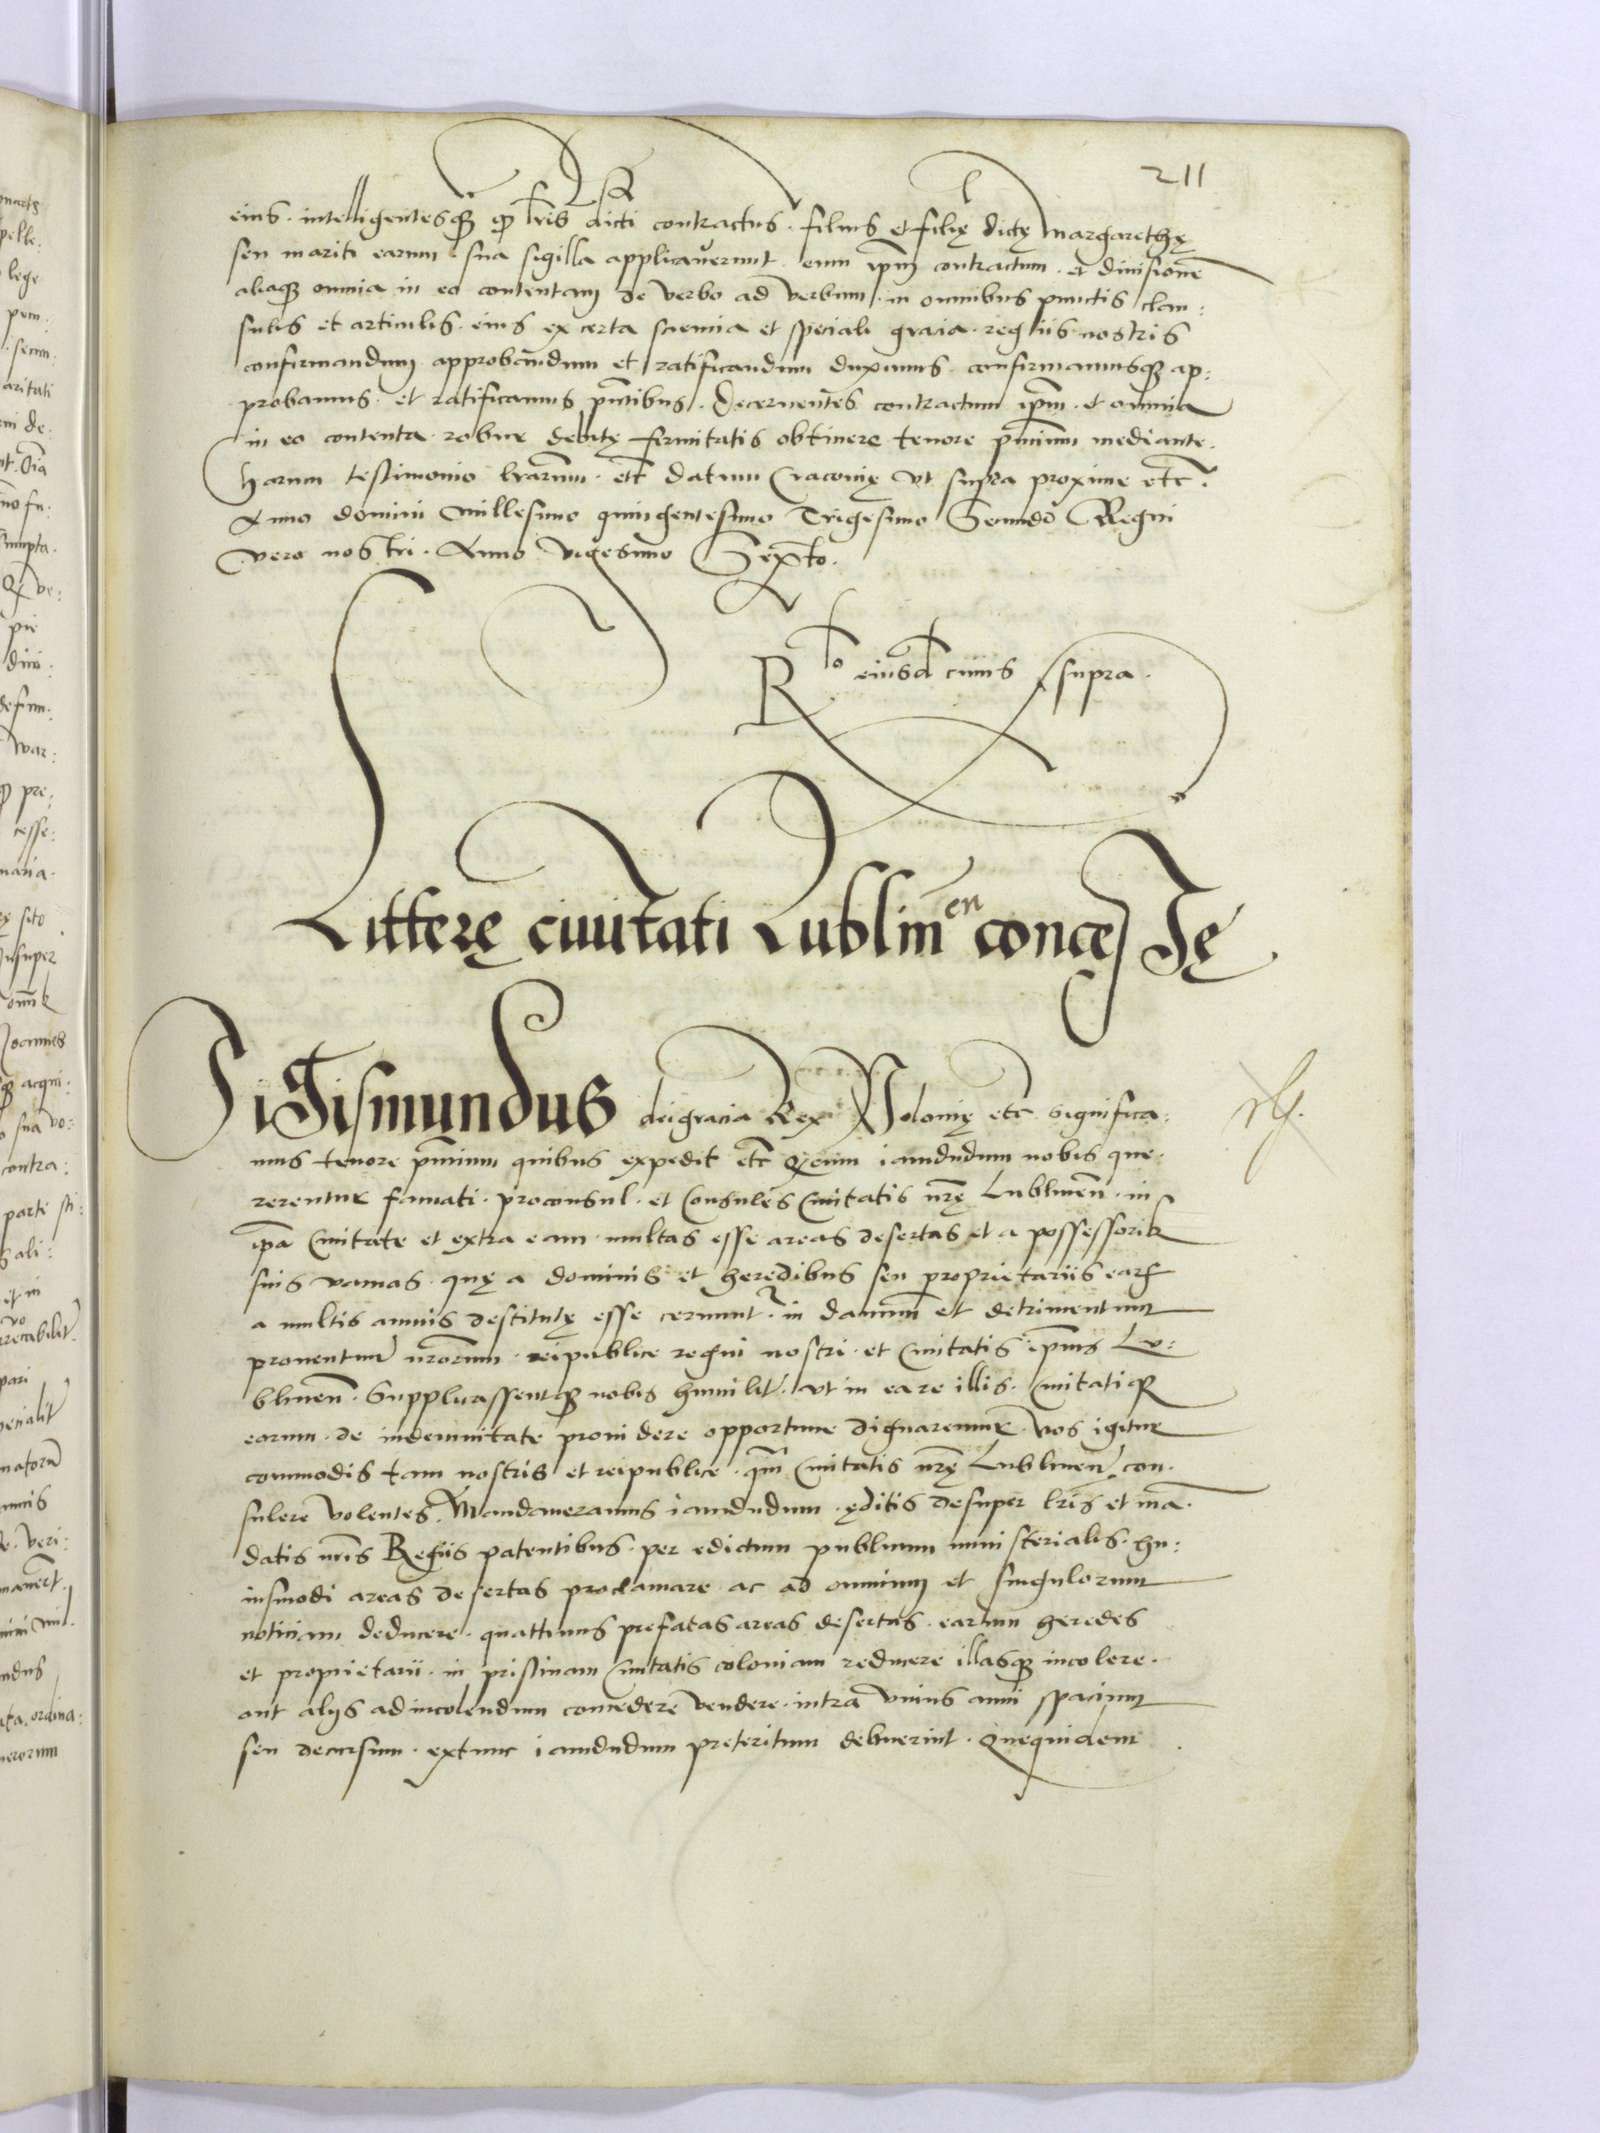 211
eius · intelligentesq3 qz lr̃is dicti contractus · filius et filię dictę Margarethę
seu mariti earum sua sigilla applicauerunt eum ip̃m contractum · et diuisionẽ
aliaq3 omnia in eo contentam de verbo ad verbum · in omnibus punctis clau:
sulis et articulis · eius ex certa sciencia et speciali gracia · regiis nostris
confirmandum approbandum et ratificandum duximus · confirmamusq3 ap:
probamus · et ratificamus pñtibus · Decernentes contractum ip̃m · et omnia
in eo contenta · robur debitę firmitatis obtinere tenore pñcium mediante ·
harum testimonio lrãrum · etc̃ datum Cracouię vt supra proxime etc̃ ·
Anno domini Millesimo quingentesimo Trigesimo Secundo Regni
vero nostri · Anno vigesimo Sexto ·
R̃lo eiusd̃ cuius supra ·
Litterę ciuitati Lublinen̄ concessę
Sigismundus dei gracia Rex Polonię etc̃ significa:
mus tenore pñcium quibus expedit etc̃ Q̃ cum iamdudum nobis que:
rerentur famati · proconsul · et Consules Ciuitatis nr̃ę Lublineñ · in
ip̃a Ciuitate et extra eam · multas esse areas desertas et a possessorib3
suis vacuas · quę a dominis et heredibus seu proprietariis earꝝ
a multis annis destitutę esse cernunt̃ in damnũm et detrimentum
prouentuum nr̃orum · reipublice regni nostri · et Ciuitatis ip̃ius Lu:
blineñ · Supplicassentq3 nobis humilit̃ · vt in ea re illis · Ciuitatiq3
eorum · de indemnitate prouidere opportune dignaremur · Nos igitur
commodis tam nostris et reipublice · qm̃ Ciuitatis nr̃ę Lublineñ · con ·
sulere volentes · Mandaueramus iamdudum · ęditis desuper lr̃is et mã ·
datis nr̃is Regiis patentibus · per edictum publicum ministerialis · hu:
iusmodi areas desertas proclamare · ac ad omnium et singulorum
noticiam deducere · quattinus prefatas areas desertas · earum heredes
et proprietarii · in pristinam Ciuitatis coloniam reducere illasq3 incolere ·
aut aliis ad incolendum concedere vendere · intra vnius anni spacium
seu decursum · extunc iamdudum preteritum debuerint · Quequidem